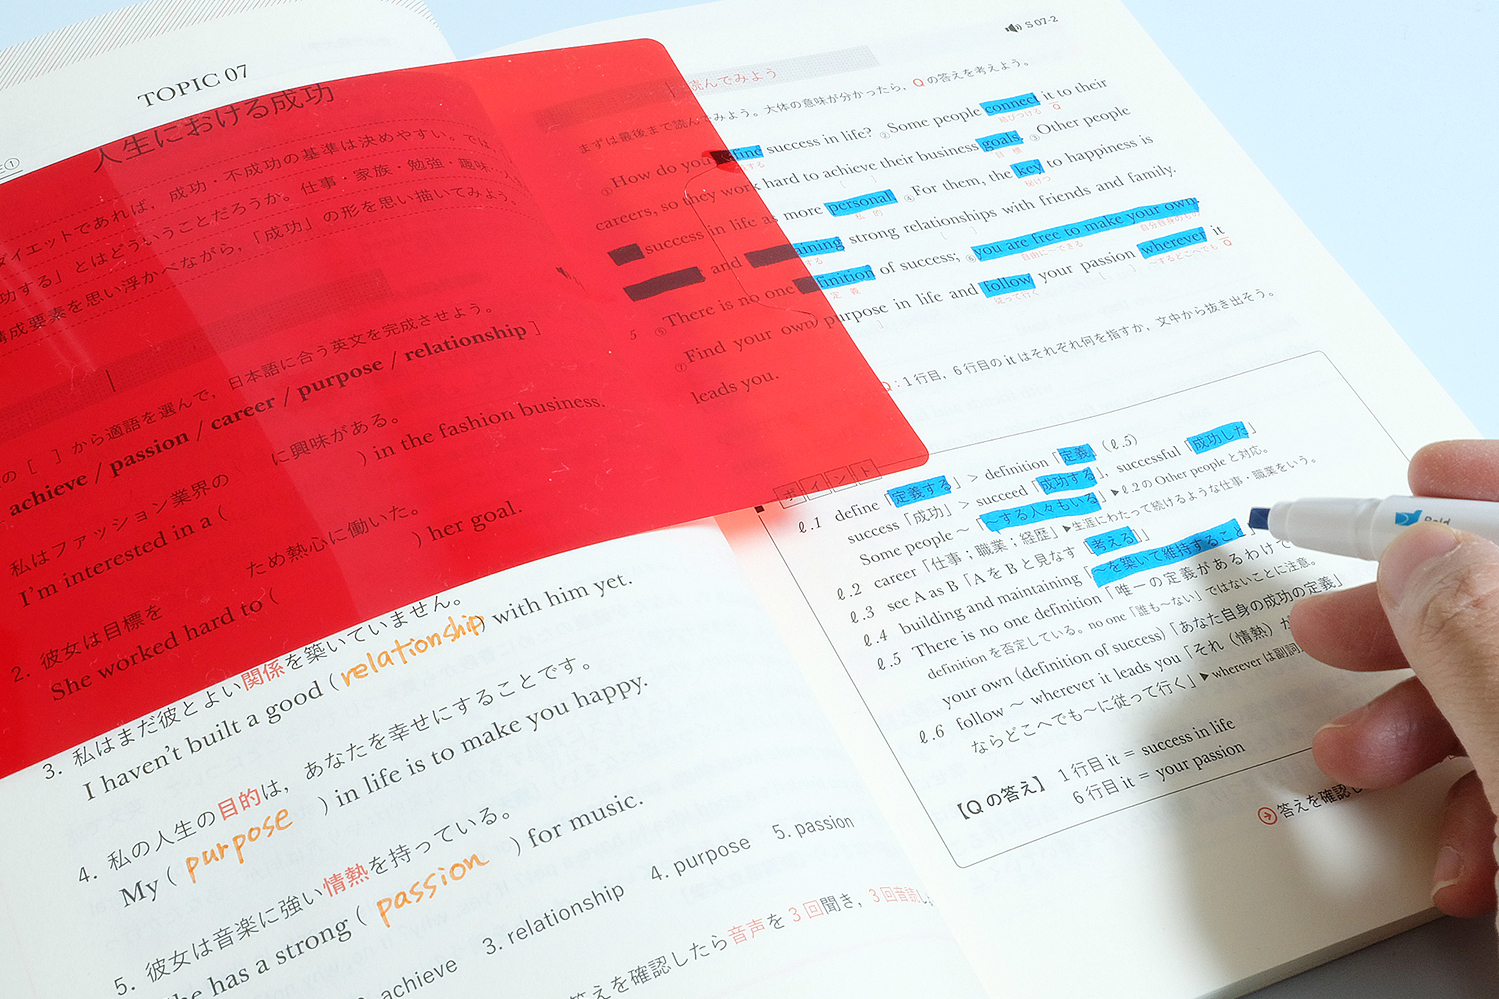 TOPIC 07
人生における成功
ダイエットであれば，成功・不成功の基準は決めやすい。では
功する」とはどういうことだろうか。仕事・家族・勉強・趣味
構成要素を思い浮かべながら，「成功」の形を思い描いてみよう。
の［ ］から適語を選んで，日本語に合う英文を完成させよう。
achieve / passion / career / purpose / relationship ］
私はファッション業界の に興味がある。
I'm interested in a ( ) in the fashion business.
2. 彼女は目標を ため熱心に働いた。
She worked hard to ( ) her goal.
3. 私はまだ彼とよい関係を築いていません。
I haven't built a good ( relationship ) with him yet.
4. 私の人生の目的は，あなたを幸せにすることです。
My ( purpose ) in life is to make you happy.
5. 彼女は音楽に強い情熱を持っている。
he has a strong ( passion ) for music.
achieve 3. relationship 4. purpose 5. passion
答えを確認したら音声を3回聞き，3回音読し
S 07-2
読んでみよう
まずは最後まで読んでみよう。大体の意味が分かったら，Qの答えを考えよう。
①How do you fine success in life? ②Some people connect it to their
careers, so they work hard to achieve their business goals. ③Other people
success in life as more personal. ④For them, the key to happiness is
and ining strong relationships with friends and family.
5 ⑤There is no one finition of success; ⑥you are free to make your own.
⑦Find your own purpose in life and follow your passion wherever it
leads you.
Q：1行目，6行目の it はそれぞれ何を指すか，文中から抜き出そう。
ポイント
ℓ.1 define「定義する」＞ definition「定義」（ℓ.5）
success「成功」＞ succeed「成功する」，successful「成功した」
Some people ～「～する人々もいる」▶ℓ.2の Other people と対応。
ℓ.2 career「仕事；職業；経歴」▶生涯にわたって続けるような仕事・職業をいう。
ℓ.3 see A as B「AをBと見なす［考える］」
ℓ.4 building and maintaining「～を築いて維持すること」
ℓ.5 There is no one definition「唯一の定義があるわけで
definition を否定している。no one「誰も～ない」ではないことに注意。
your own (definition of success)「あなた自身の成功の定義」
ℓ.6 follow ～ wherever it leads you「それ（情熱）が
ならどこへでも～に従って行く」▶wherever は副詞
【Qの答え】 1行目 it = success in life
6行目 it = your passion
答えを確認し